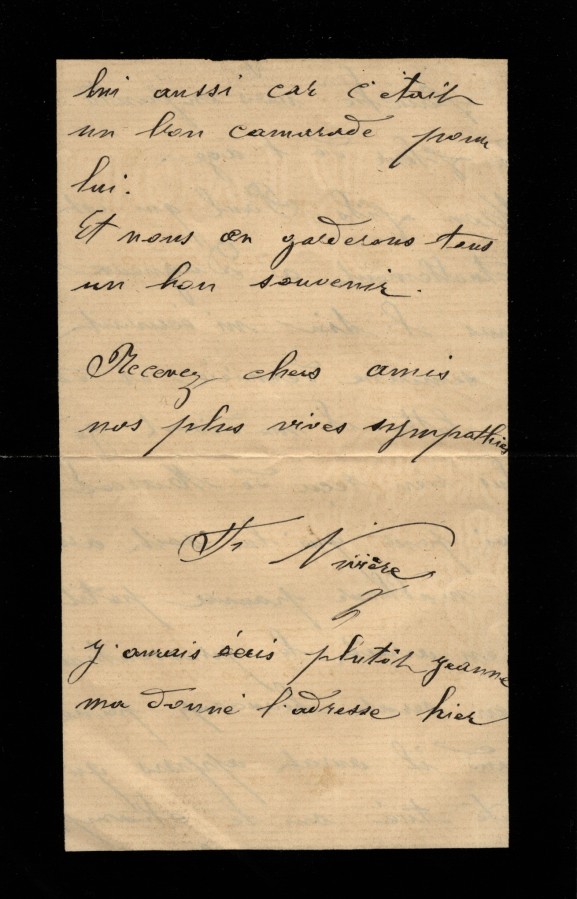 lui aussi car c'était
un bon camarade pour
lui.
Et nous en garderons tous
un bon souvenir.
Recevez chers amis
nos plus vives sympathies
J'aurais écris plutôt Jeanne
ma donné l'adresse hier